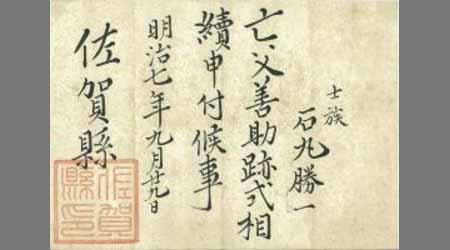 士族
石丸勝一
亡父善助跡式相
續申付候事
明治七年九月廿九日
佐賀縣
佐賀
縣印